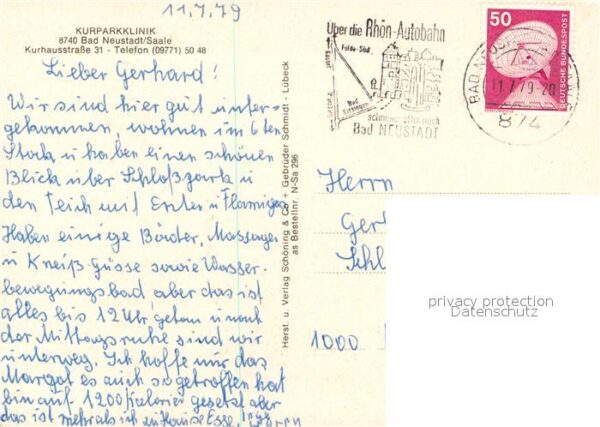 11.7.79
KURPARKKLINIK
8740 Bad Neustadt/Saale
Kurhausstraße 31 - Telefon (09771) 50 48
Lieber Gerhard!
Wir sind hier gut unter-
gekommen, wohnen im 6ten
Stock u haben einen schönen
Blick über Schloßpark u
den Teich mit Enten u Flamigos
Haben einige Bäder, Massagen
u Kneip Güsse sowie Wasser-
bewegungsbad aber das ist
alles bis 12 Uhr getan u nach
der Mittagsruhe sind wir
unterweg. Ich hoffe nur das
Margot es auch so getroffen hat
bin auf 1200 Kalorien gesetzt aber
das ist mehr als ich zu Hause Esse.
Herst. u. Verlag Schöning & Co + Gebrüder Schmidt · Lübeck
as Bestellnr. N-Sa 296
Über die Rhön-Autobahn
Fulda-Süd
Bad
Kissingen
schneller
nach
Bad NEUSTADT
BAD NEUS
11.7.79-20
874
50
DEUTSCHE BUNDESPOST
Herrn
Ger
Schl
1000
privacy protection
Datenschutz